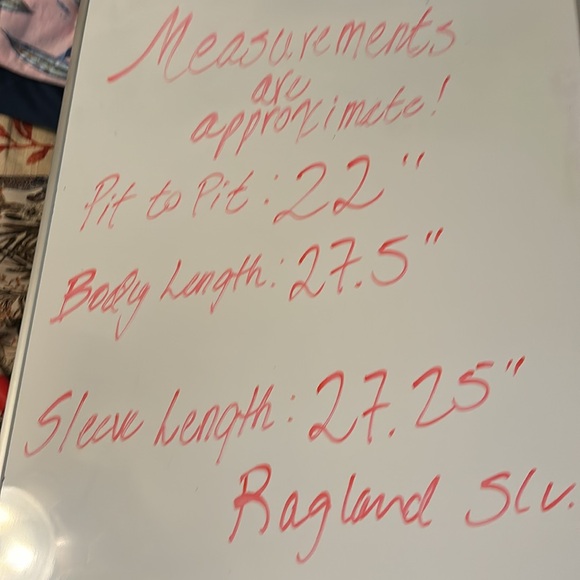 Measurements
are
approximate!
Pit to Pit: 22"
Body Length: 27.5"
Sleeve Length: 27.25"
Ragland Slv.